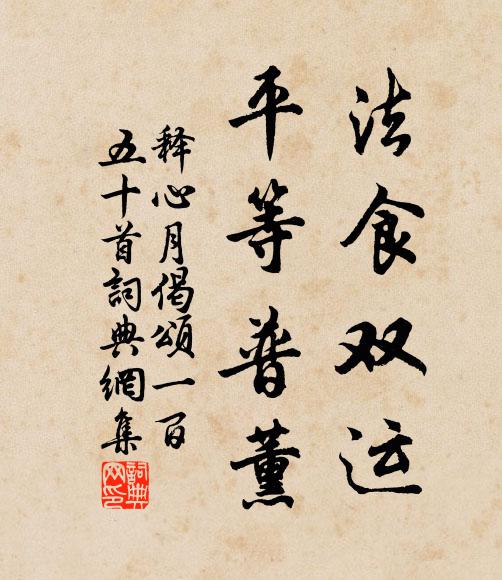 法食双运
平等普薰
释心月偈頌一百
五十首詞典網集
詞典
网印